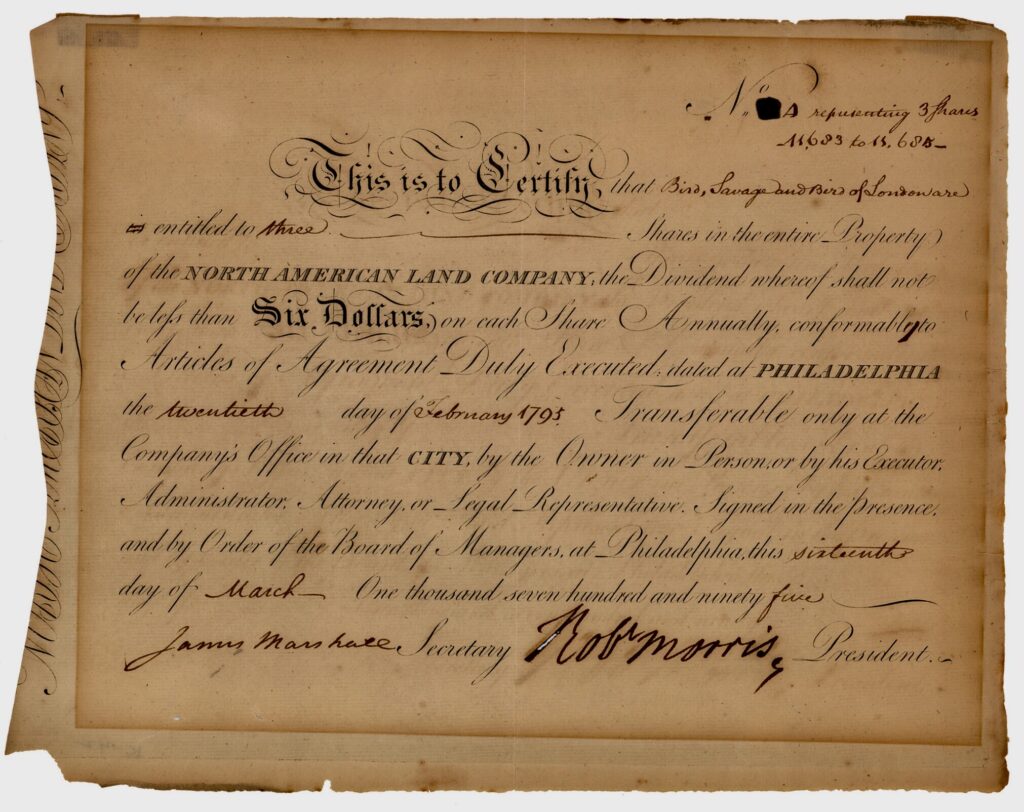 No. A representing 3 Shares
11,683 to 11,685
This is to Certify, that Bird, Savage and Bird of London are
is entitled to three Shares in the entire Property
of the NORTH AMERICAN LAND COMPANY, the Dividend whereof shall not
be leſs than Six Dollars, on each Share Annually, conformably to
Articles of Agreement Duly Executed, dated at PHILADELPHIA
the twentieth day of February 1795 Transferable only at the
Company's Office in that CITY, by the Owner in Person, or by his Executor,
Administrator, Attorney, or Legal Representative. Signed in the presence,
and by Order of the Board of Managers, at Philadelphia, this sixteenth
day of March One thousand seven hundred and ninety five
James Marshall Secretary Robt Morris, President.